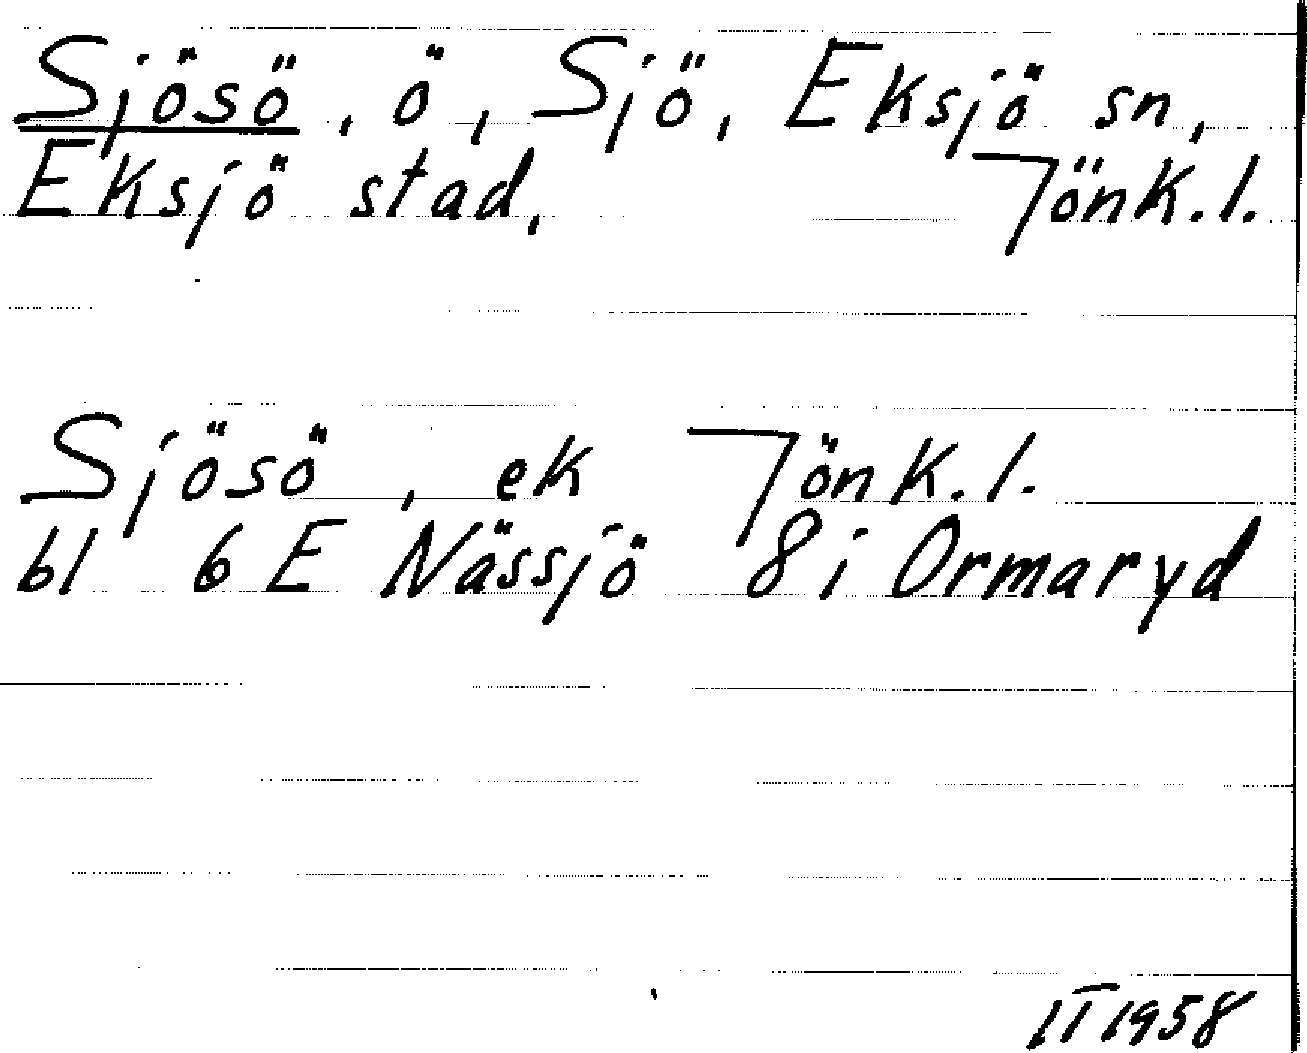 Sjösö, ö, Sjö, Eksjö sn,
Eksjö stad, Jönk.l.
Sjösö, ek Jönk.l.
bl 6 E Nässjö 8 i Ormaryd
II 1958